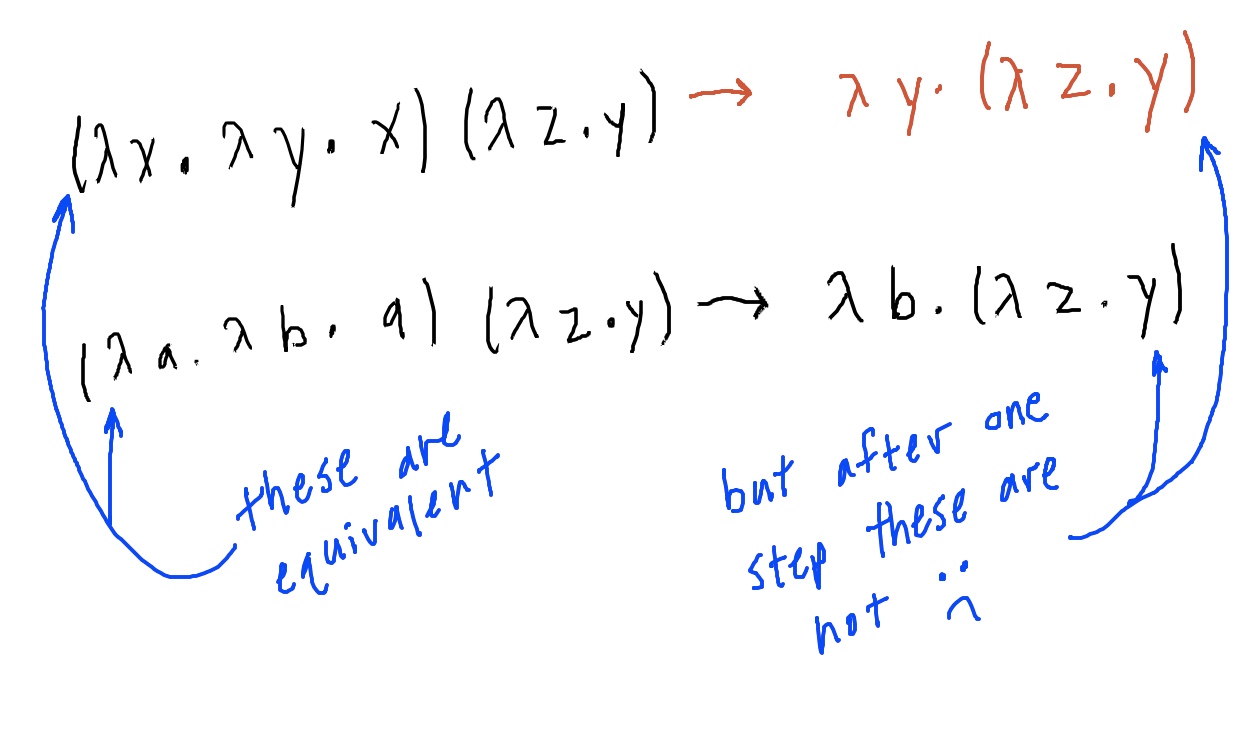 (λx. λy. x) (λz.y) → λy. (λz.y)
(λa. λb. a) (λz.y) → λb. (λz.y)
these are
equivalent
but after one
step these are
not :(